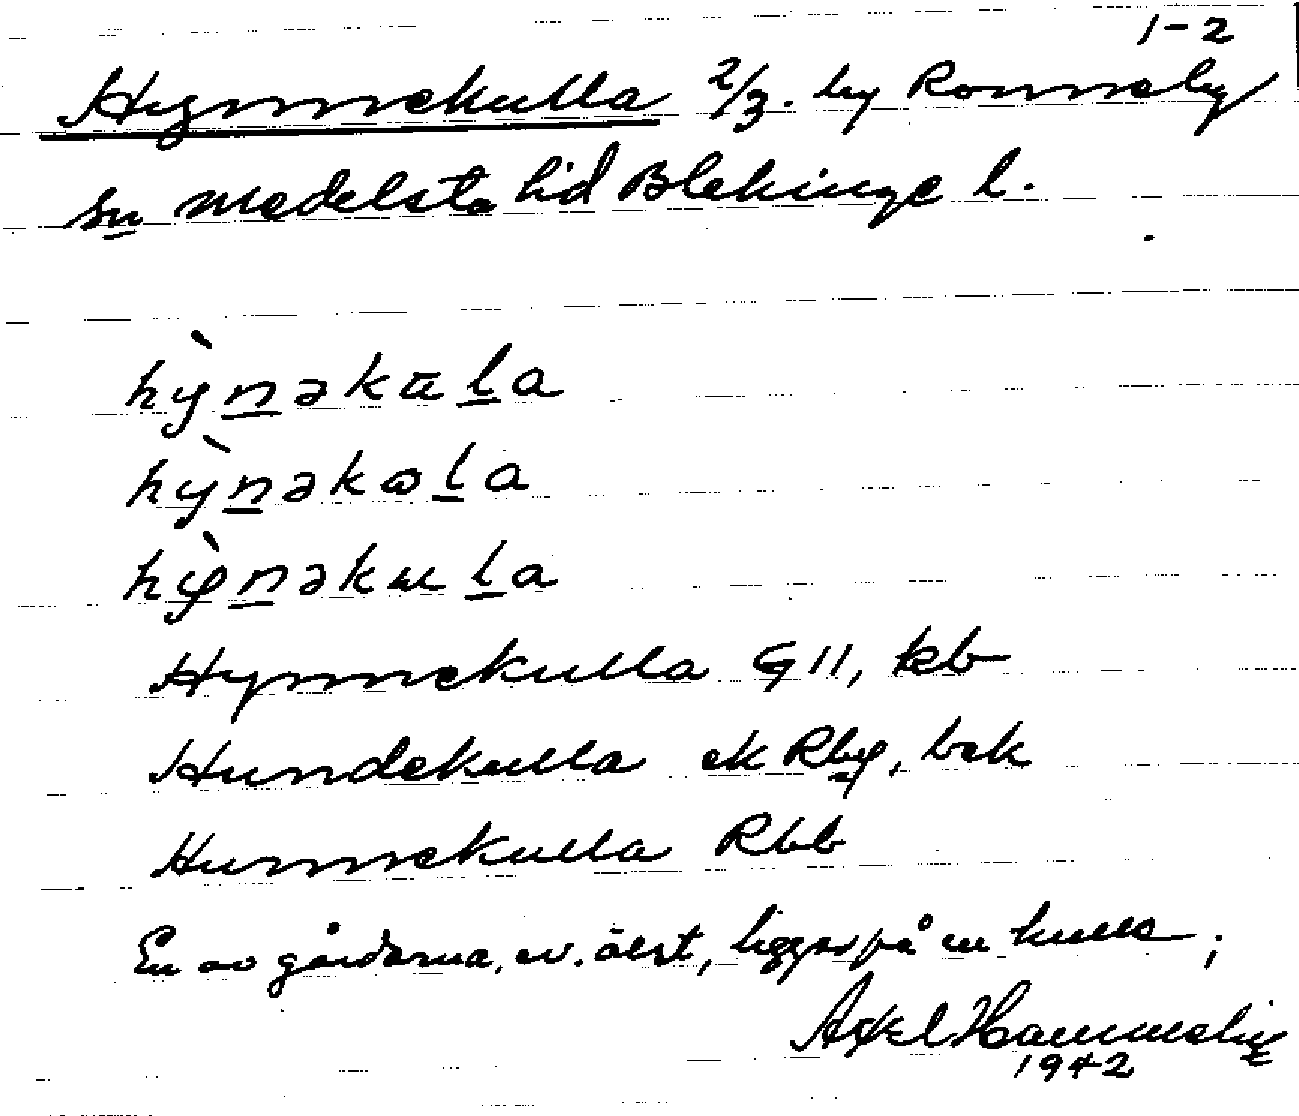 1-2
Hymnekulla 2/3. by Ronneby
sn Medelsta hd Blekinge l.
hỳnəkūla
hỳnəkɷla
hỳnəkula
Hynnekulla GII, kb
Hundekulla ek Rby, bek
Hunnekulla Rbb
En av gårdarna, ev. älst, ligger på en kulle;
Axel Hammelin
1942